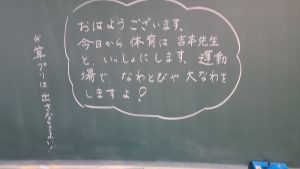 おはようございます。
今日から 体育は 吉本先生
と、いっしょにします。運動
場で、なわとびや 大なわを
しますよ!
※算プリは 出さなくてよい!